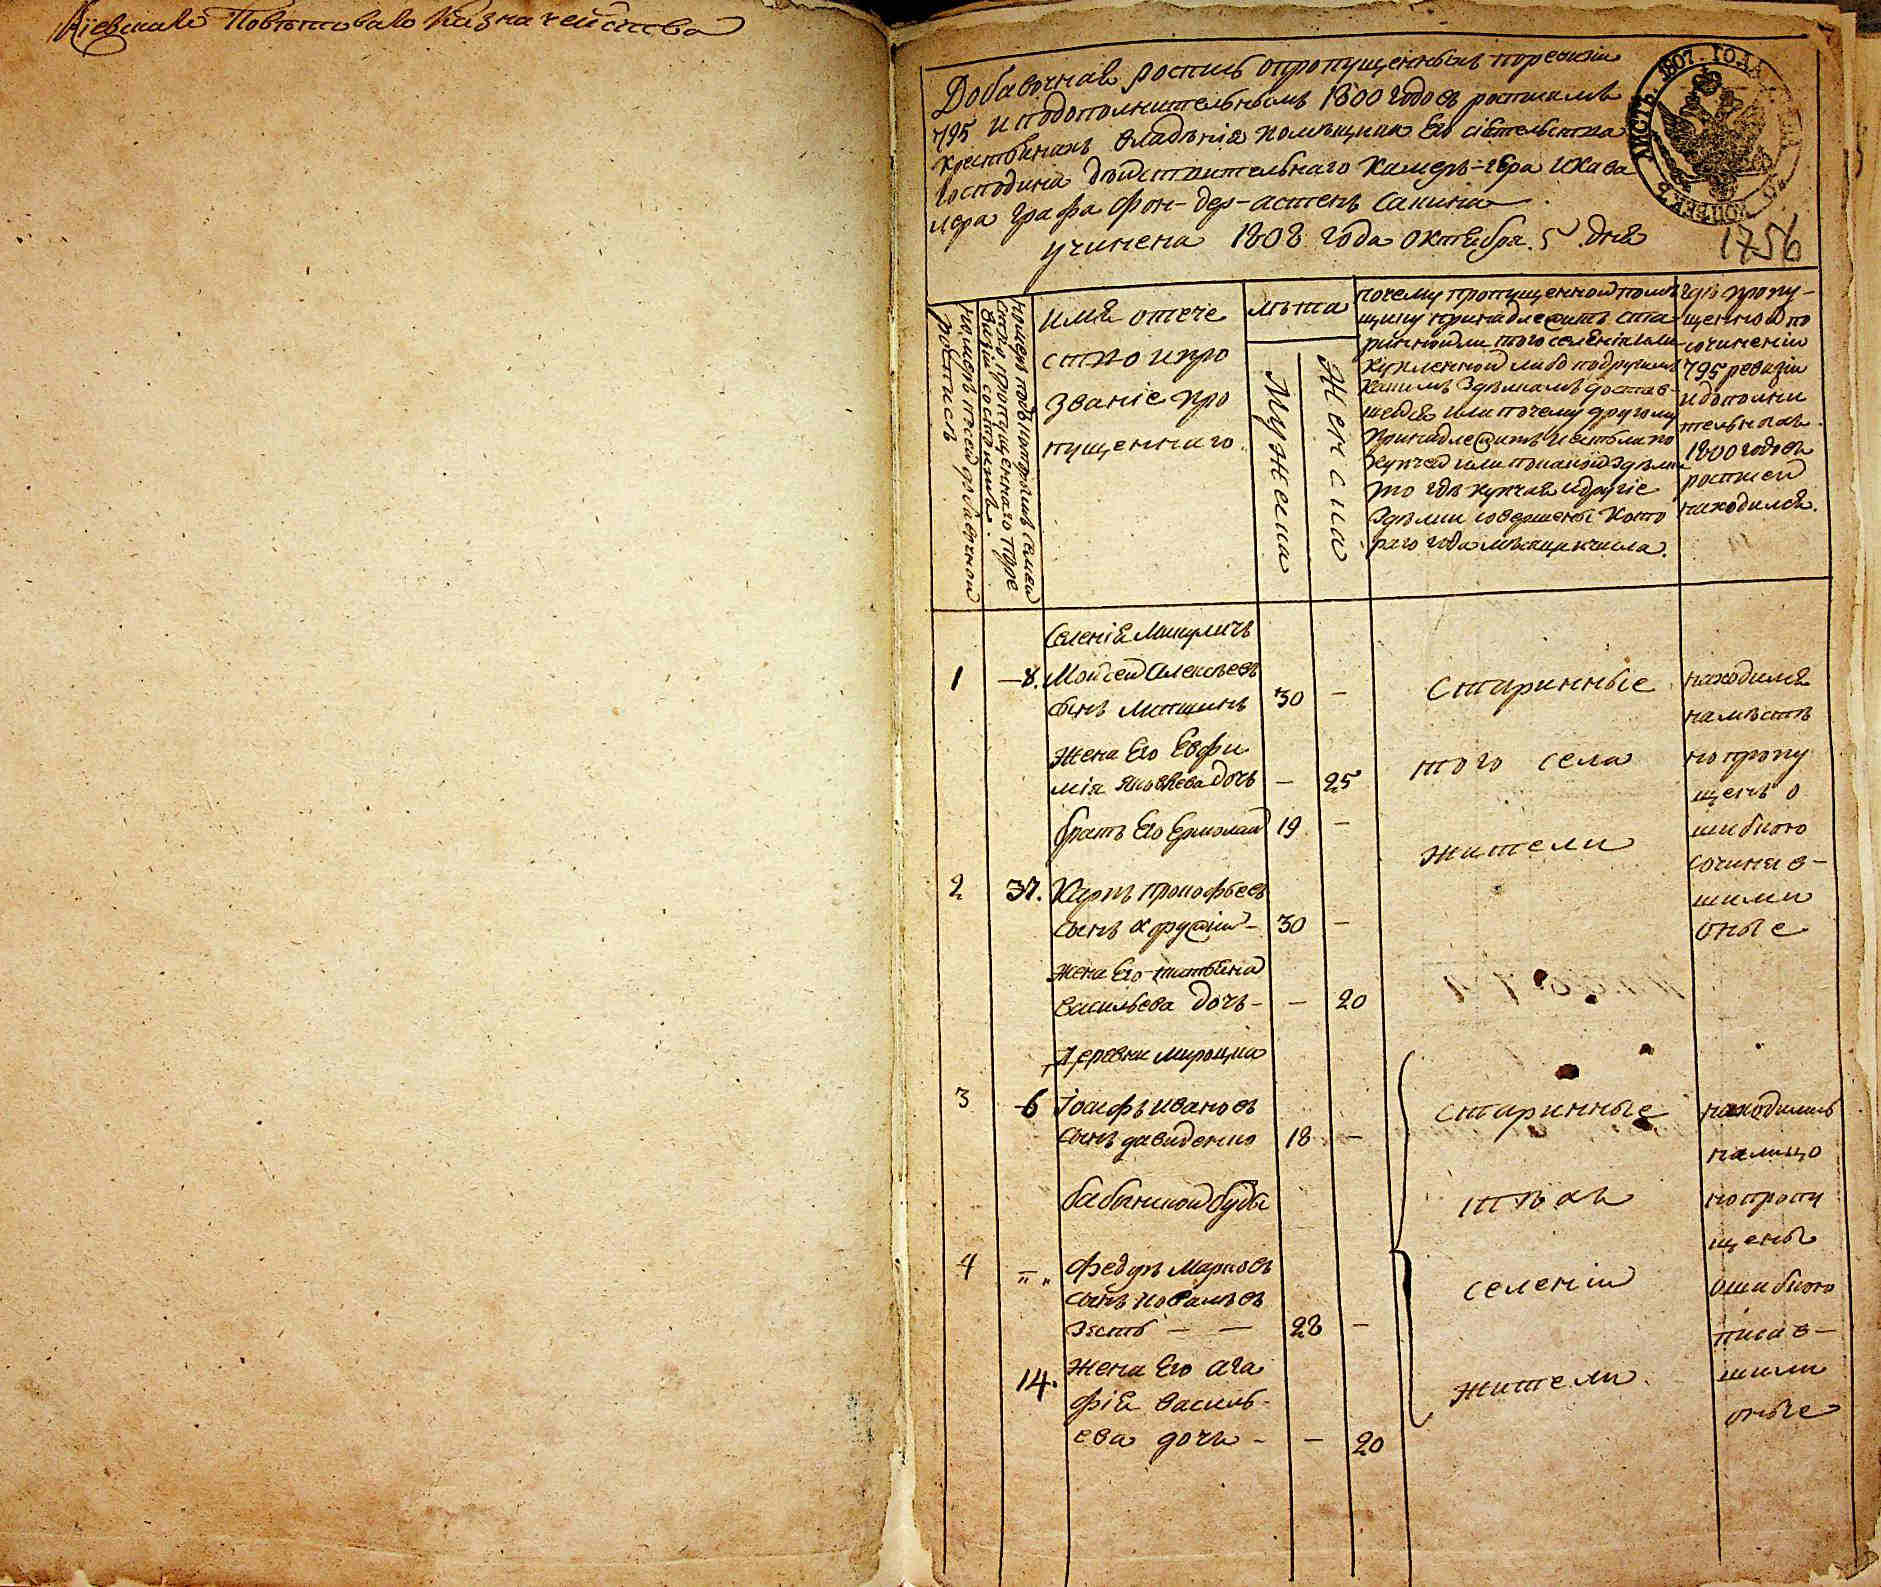 Кіевскаго Повѣтоваго Казначейства
Добавочная роспись о пропущенныхъ по ревизіи
795 и по дополнительнымъ 1800 годовъ росписямъ
крестьянахъ владѣнія помѣщика Его сіятельства
Господина дѣйствительнаго Камеръ-гера и кава
лера графа фон-дер-астенъ Сакина
учинена 1808 года Октября 5 дня
ЛИСТЪ 1807. ГОДА
КОПѢЕКЪ
1756
номеръ по сей добавочной
росписѣ
номеръ подъ которымъ семей
ство пропущеннаго по ре
визіи состоитъ
имя отече
ство и про
званіе про
пущеннаго
лѣта
Мужеска
Женска
почему пропущенной помѣ
щику принадлежитъ ста
ринной ли того селенія или
купленной либо по другимъ
какимъ здѣлкамъ достав
шейся или почему другому
принадлежитъ и естьли по
купчей или по какой здѣлки
то гдѣ купчая и другіе
здѣлки совершены кото
раго года месяца и числа.
гдѣ пропу-
щенной по
сочиненіи
795 ревизіи
и дополни
тельныхъ
1800 годовъ
росписей
находился.
Селенія Микуличъ
1
8.
Мойсей Алексѣевъ
сынъ Литвинъ
30
—
Старинные
находился
на мѣстѣ
жена Его Евфи
мія Яковлева дочь
—
25
того села
но пропу
щенъ о
братъ Его Ермолай
19
—
жители
шибкою
сочиняв-
2
37.
Карпъ Прокофьевъ
сынъ
30
—
шими
оные
жена Его татьяна
Васильева дочь
—
20
Деревни Мироцка
3
6
Іосифъ Ивановъ
сынъ давиденко
18
—
Старинные
находились
на лицо
бабынской Буды
тѣхъ
но пропу
щены
4
„
Федоръ Марковъ
сынъ Ковалѣвъ
Зять
28
—
селеніи
ошибкою
писав-
14.
жена Его ага
фія Василь-
ева дочь
—
20
жители
шими
оные